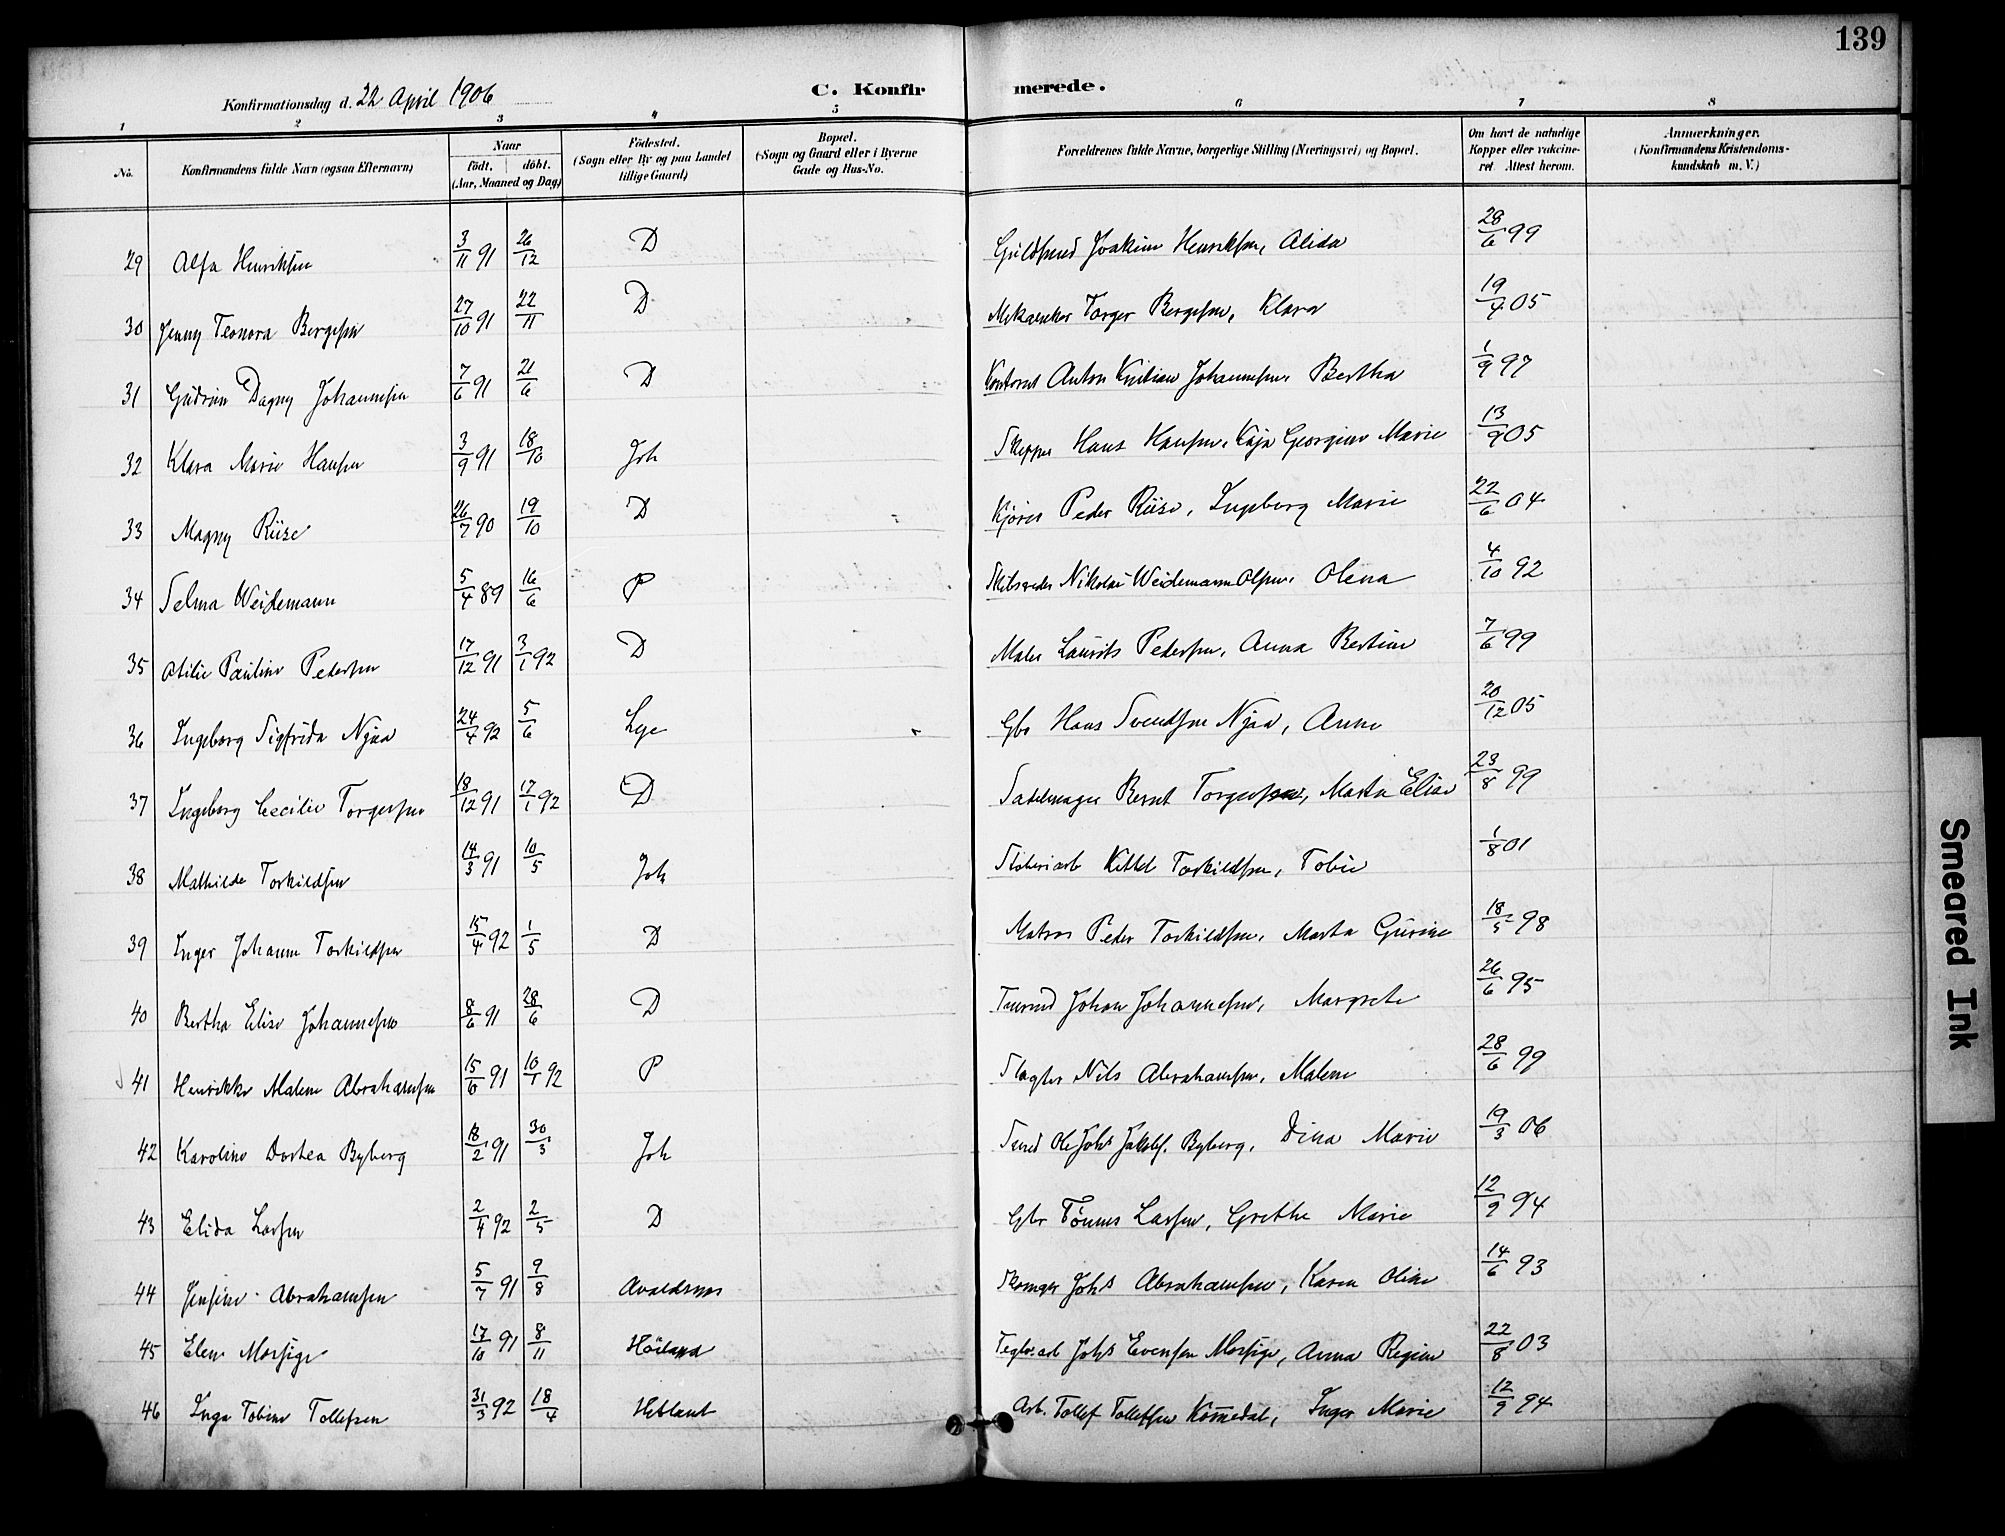 139
Konfirmationsdag d. 22 April 1906
C. Konfirmerede.
1 2 3 4 5 6 7 8
No. Konfirmandens fulde Navn (ogsaa Efternavn) Naar født. døbt. (Aar, Maaned og Dag) Fødested. (Sogn eller By og paa Landet tillige Gaard) Bopæl. (Sogn og Gaard eller i Byerne Gade og Hus-No. Forældrenes fulde Navne, borgerlige Stilling (Næringsvei) og Bopæl. Om havt de naturlige Kopper eller vakcineret. Attest herom. Anmærkninger. (Konfirmandens Kristendomskundskab m. V.)
29 Alfa Henriksen 3/11 91 26/12 D Guldsmed Joakim Henriksen, Alida 28/6 99
30 Jenny Teonora Bergesen 27/10 91 22/11 D Mekaniker Torger Bergesen, Klara 19/9 05
31 Gudrun Dagny Johannesen 7/6 91 21/6 D Kontorist Anton Kristian Johannesen, Bertha 1/9 97
32 Klara Marie Hansen 3/9 91 18/10 Joh Skipper Hans Hansen, Kaja Georgine Marie 13/9 05
33 Magny Riise 26/7 90 19/10 D Kjører Peder Riise, Ingeborg Marie 22/6 04
34 Selma Weidemann 5/4 89 16/6 P Skibsreder Nikolai Weidemann Olsen, Olena 4/10 92
35 Otilie Pauline Pedersen 17/12 91 3/1 92 D Maler Laurits Pedersen, Anna Bertine 7/6 99
36 Ingeborg Sigfrida Njaa 24/4 92 5/6 Lye Gbr Hans Svendsen Njaa, Anne 20/12 05
37 Ingeborg Cecilie Torgersen 18/12 91 17/1 92 D Sadelmager Bernt Torgersen, Marta Elise 23/8 99
38 Mathilde Torkildsen 14/3 91 10/5 Joh Støberiarb Kittel Torkildsen, Tobie 1/8 01
39 Inger Johanne Torkildsen 15/4 92 1/5 D Matros Peder Torkildsen, Marta Gurine 18/5 98
40 Bertha Elise Johannesen 8/6 91 28/6 D Tømmd Johan Johannesen, Margrete 26/6 95
41 Henrikke Malene Abrahamsen 15/6 91 10/1 92 P Slagter Nils Abrahamsen, Malene 28/6 99
42 Karoline Dortea Byberg 18/2 91 30/3 Joh Smed Ole Johs Jakobs. Byberg, Dina Marie 19/3 06
43 Elida Larsen 2/4 92 2/5 D Gbr Tønnes Larsen, Grethe Marie 12/9 94
44 Jensine Abrahamsen 5/7 91 9/8 Avaldsnes Skomager Johs Abrahamsen, Karen Oline 14/6 93
45 Elene Morsige 17/10 91 8/11 Höiland Teglv.arb Johs Evensen Morsige, Anna Regine 22/8 03
46 Inga Tobine Tollefsen 31/3 92 18/4 Hetland Arb. Tollef Tollefsen Kommedal, Inger Marie 12/9 94
Smeared Ink